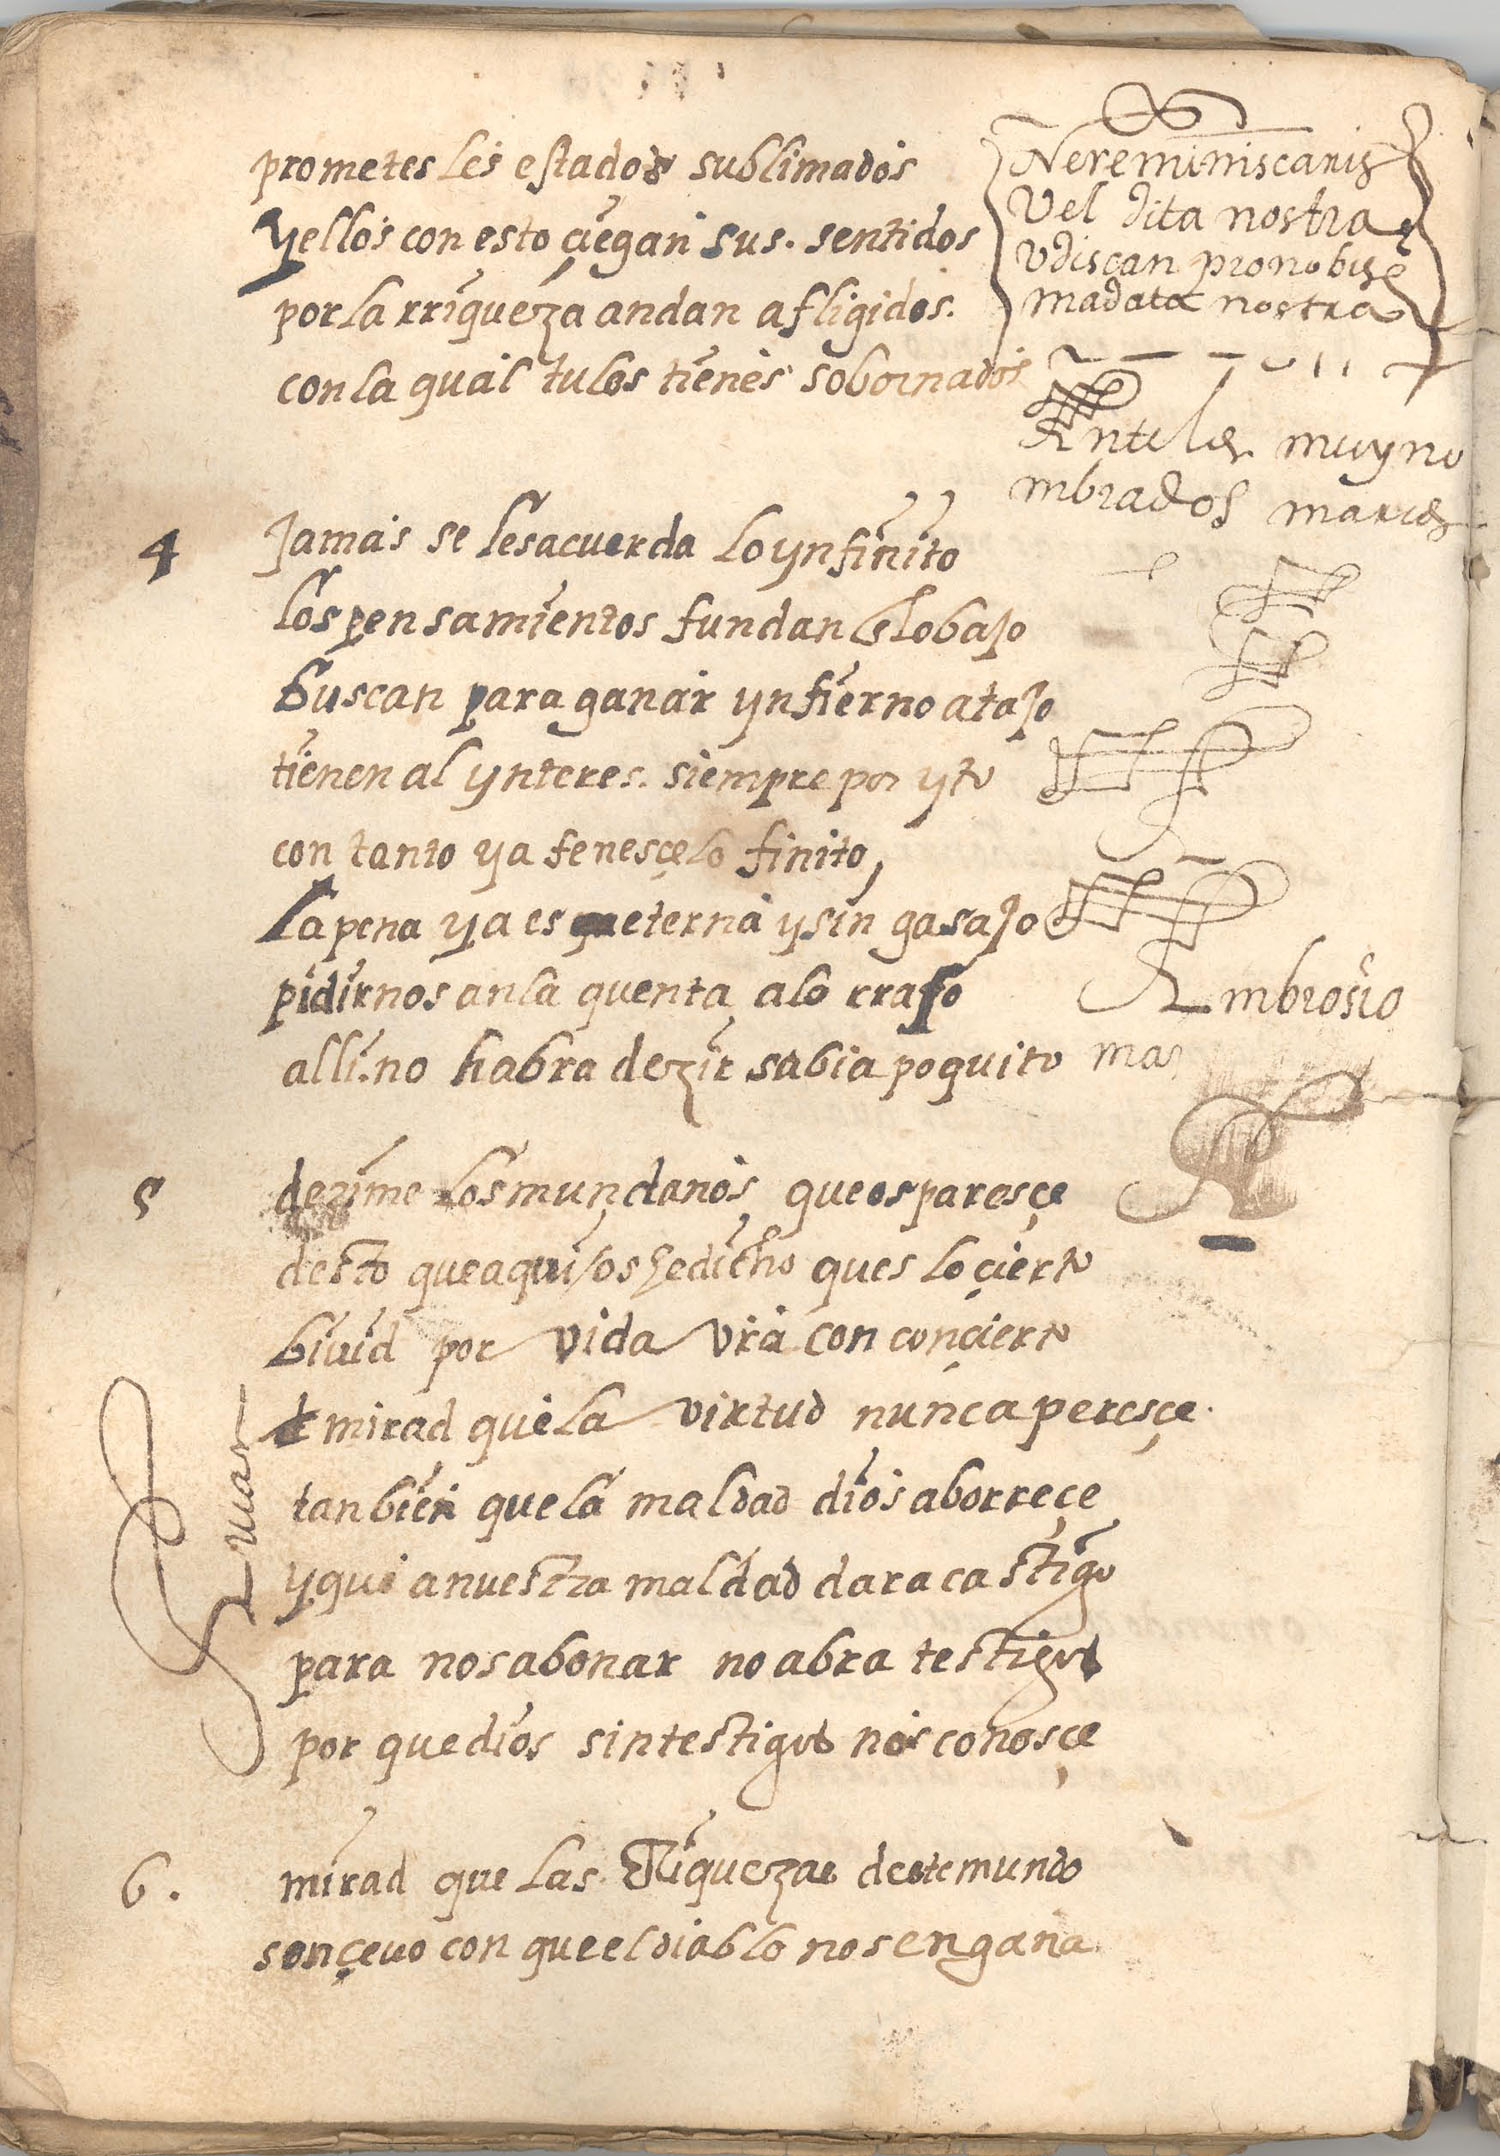 prometes les estados sublimados
yellos con esto çiegan sus. sentidos
por la rriqueza andan afligidos.
con la qual tu los tienes sobornados
Nereminiscaris
vel dita nostra
pronobis
madata nostra
muy no
mbrados
4 Jamas se les acuerda lo ynfinito
los pensamientos fundan lo bajo
buscan para ganar ynfierno atajo
tienen al ynteres. siempre por yto
con tanto ya fenesçe lo finito,
la pena ya es eterna y sin gasajo
pidirnos an la quenta a lo rraso
alli. no habra dezir sabia poquito
Ambrosio
mar
5 dezime los mundanos que os paresçe
desto que aqui os he dicho ques lo çierto
biuid por vida vra con conçierto
mirad que la virtud nunca peresçe.
tanbien que la maldad dios aborreçe
y que a nuestra maldad dara castigo
para nos abonar no abra testigos
por que dios sin testigos nos conosçe
Juan
6. mirad que las Riquezas deste mundo
son çeuo con que el diablo nos engana